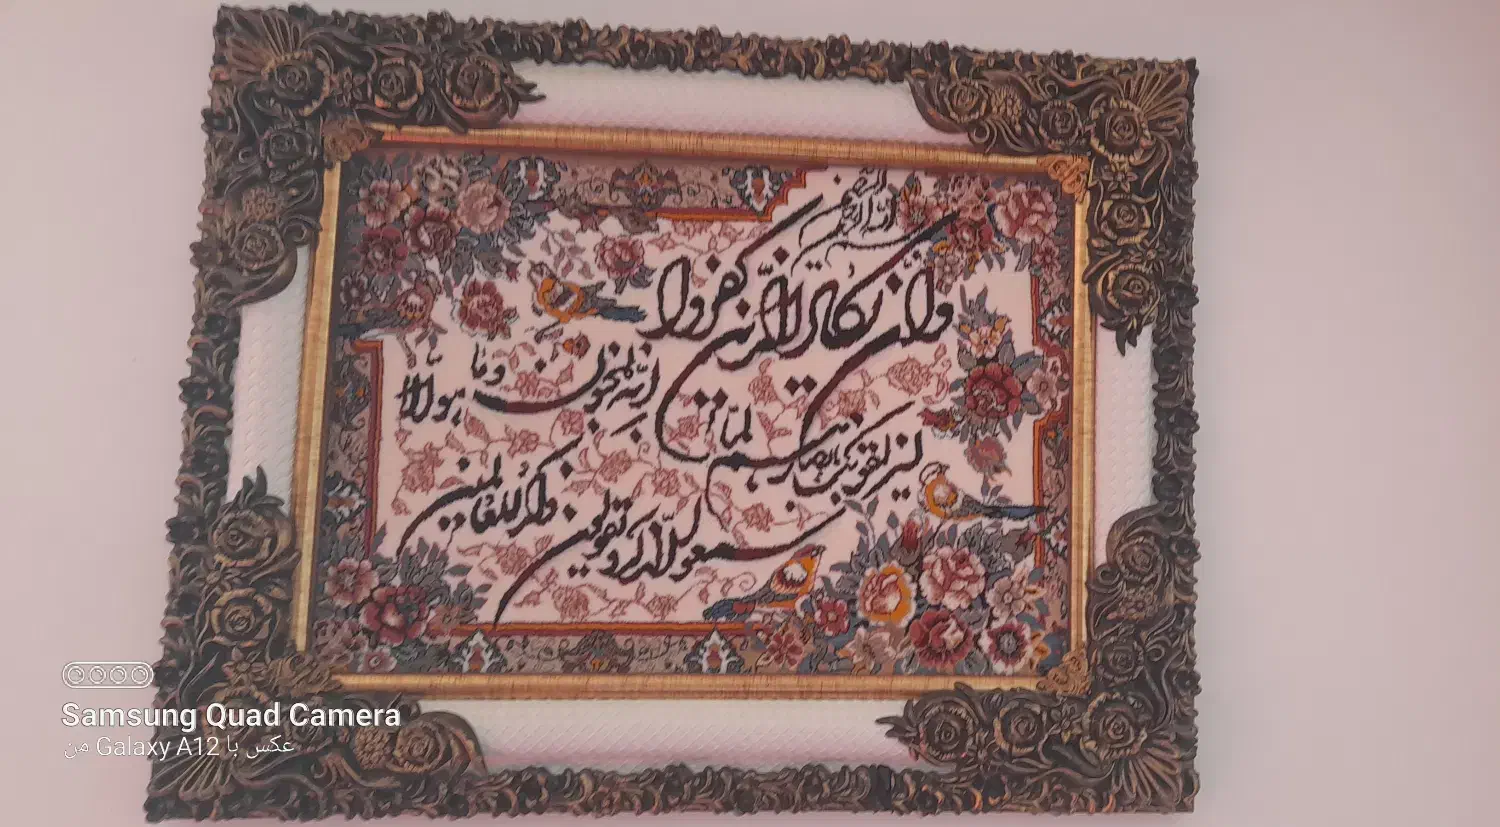 بسم الله الرحمن الرحیم
وان یکاد الذین کفروا
لیزلقونک بابصارهم لما
سمعوا الذکر و یقولون
انه لمجنون و ما هو الا
ذکر للعالمین
Samsung Quad Camera
عکس با Galaxy A12 من